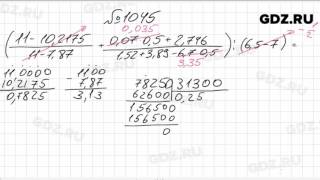 GDZ.RU
№1045
0,035
(11-10,2175 / 11-7,87 + 0,07·0,5+2,796 / 1,52+3,89-6,7·0,5) : (6,5-7) =
3,35
-1/2
11,0000
10,2175
0,7825
11,00
7,87
3,13
78250 31300
62600 0,25
156500
156500
0
GDZ.RU
GDZ.RU